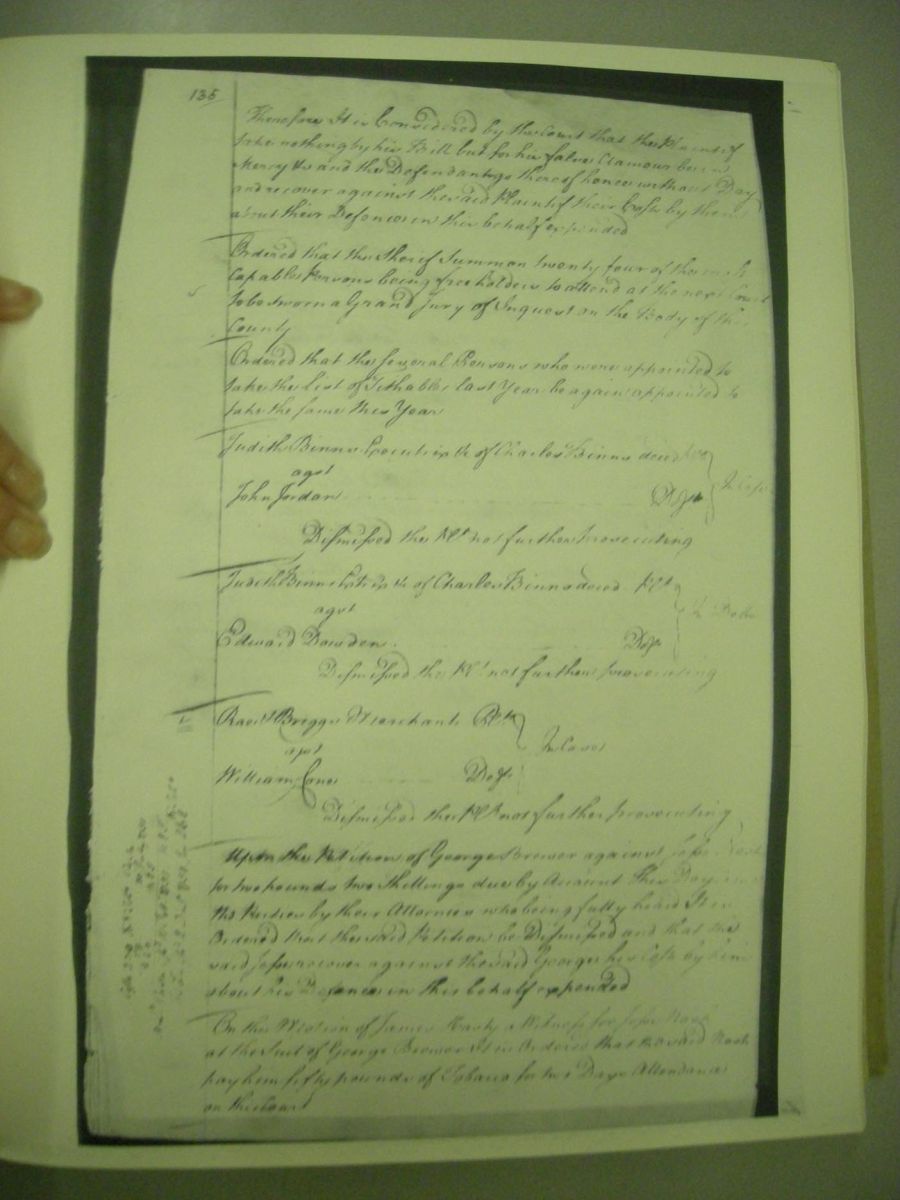 135
Therefore It is Considered by the Court that the Plaintif
take nothing by his Bill but for his false Clamour be in
Mercy &c and the Defendants go thereof hence without Day
and recover against the said Plaintif their Costs by them
about their Defence in this behalf expended
Ordered that the Sherif Summon twenty four of the most
Capable Persons being freeholders to attend at the next Court
to be sworn a Grand Jury of Inquest on the Body of this
County
Ordered that the several Persons who were appointed to
take the list of Tithables last Year be again appointed to
take the same this Year
Judith Binns Executrix &c of Charles Binns deced
agst
John Jordan Deft In Case
Dismissed the Plt not further prosecuting
Judith Binns Extrix &c of Charles Binns deced Plt
agst In Debt
Edward Dawden Deft
Dismissed the Plt not further prosecuting
Briggs Merchant Plt
agst In Case
William Cane Deft
Dismissed the Plt not further prosecuting
Upon the Petition of George Brewer against Jesse
for two pounds two Shillings due by Account This Day
the Parties by their Attornies who being fully heard It is
Ordered that the said Petition be Dismissed and that the
said Jesse recover against the said George his Costs by him
about his Defence in this behalf expended
On the Motion of James a Witness for Jesse
at the Suit of George Brewer It is Ordered that the said
pay him fifty pounds of Tobacco for two Days Attendance
on this Court